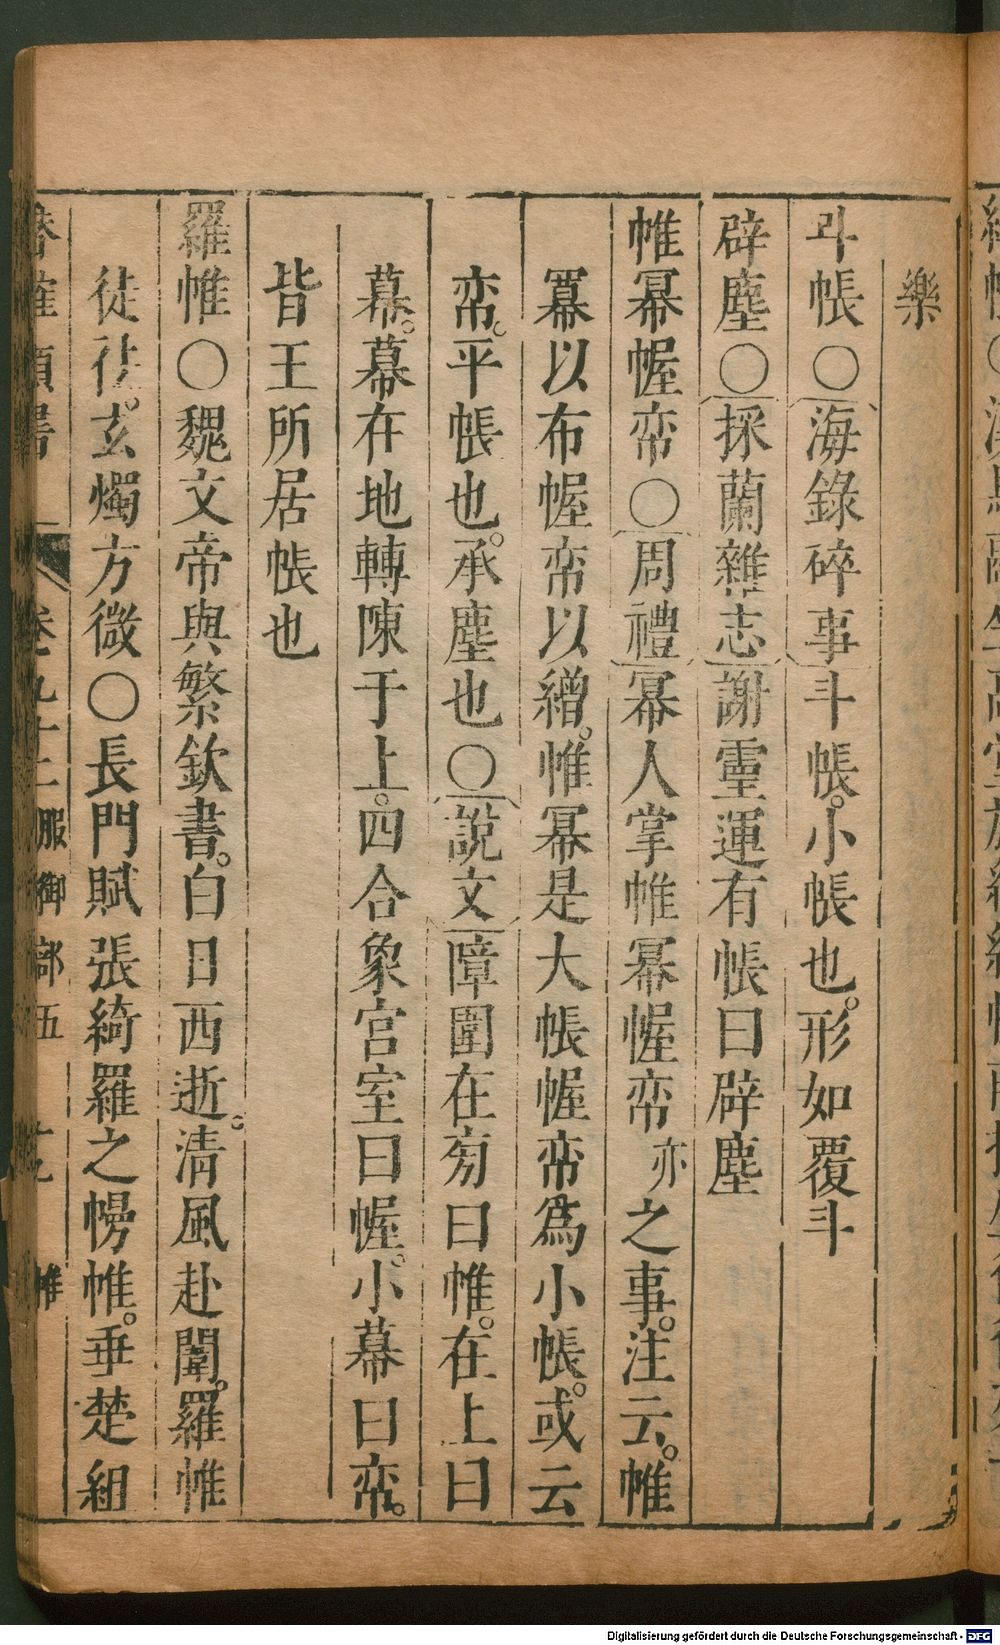 樂
斗帳○海錄碎事斗帳。小帳也。形如覆斗
辟塵○採蘭雜志謝靈運有帳曰辟塵
帷幂幄帟○周禮幂人掌帷幂幄帟亦之事。注云。帷
冪以布幄帟以繒。帷幂是大帳幄帟為小帳。或云
帟。平帳也。承塵也○說文障圍在㫄曰帷。在上曰
幕。幕在地轉陳于上。四合象宮室曰幄。小幕曰帟。
皆王所居帳也
羅帷○魏文帝與繁欽書。白日西逝。清風赴闈。羅帷
徒袪。玄燭方微○長門賦張綺羅之幔帷。垂楚組
類書 卷九十二 服御部五 十九 帷
Digitalisierung gefördert durch die Deutsche Forschungsgemeinschaft - DFG